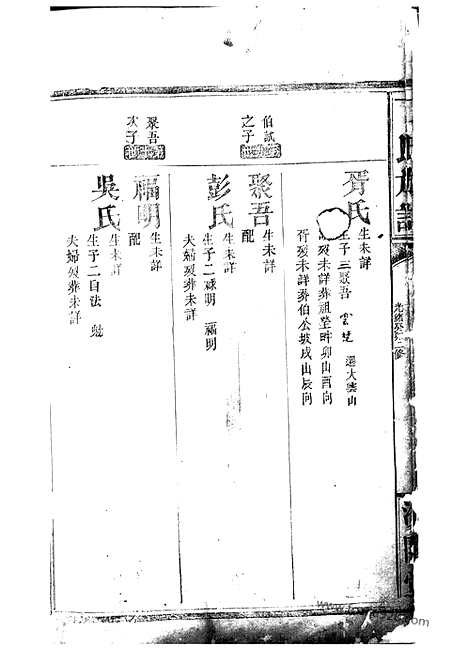 氏族譜
光緒
修
胥氏
生未詳
生子三聚吾
遷大雲山
歿未詳葬祖塋畔卯山酉向
胥歿未詳葬伯公坡戌山辰向
之子
聚吾
生未詳
配
彭氏
生未詳
生子二祿明 福明
夫婦歿葬未詳
聚吾
次子
福明
生未詳
配
吳氏
生未詳
生子二自法
夫婦歿葬未詳